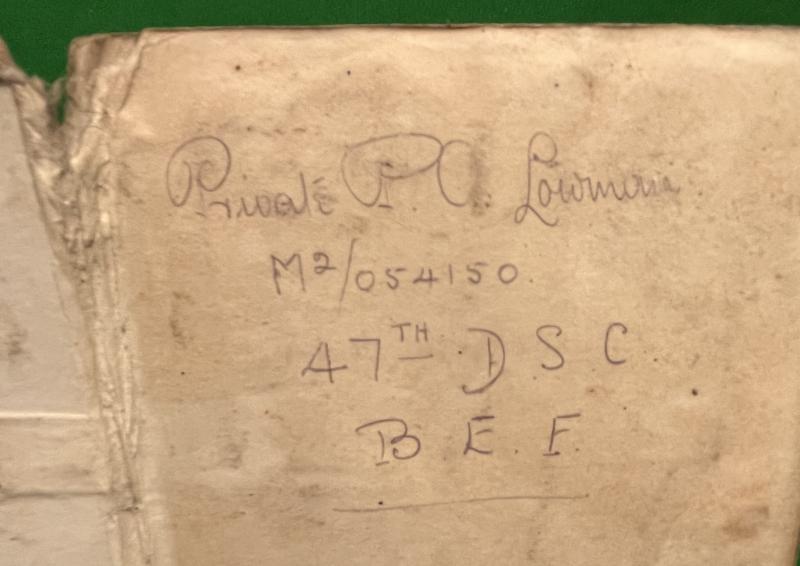 Private P. C.
M2/054150.
47TH D S C
B. E. F.